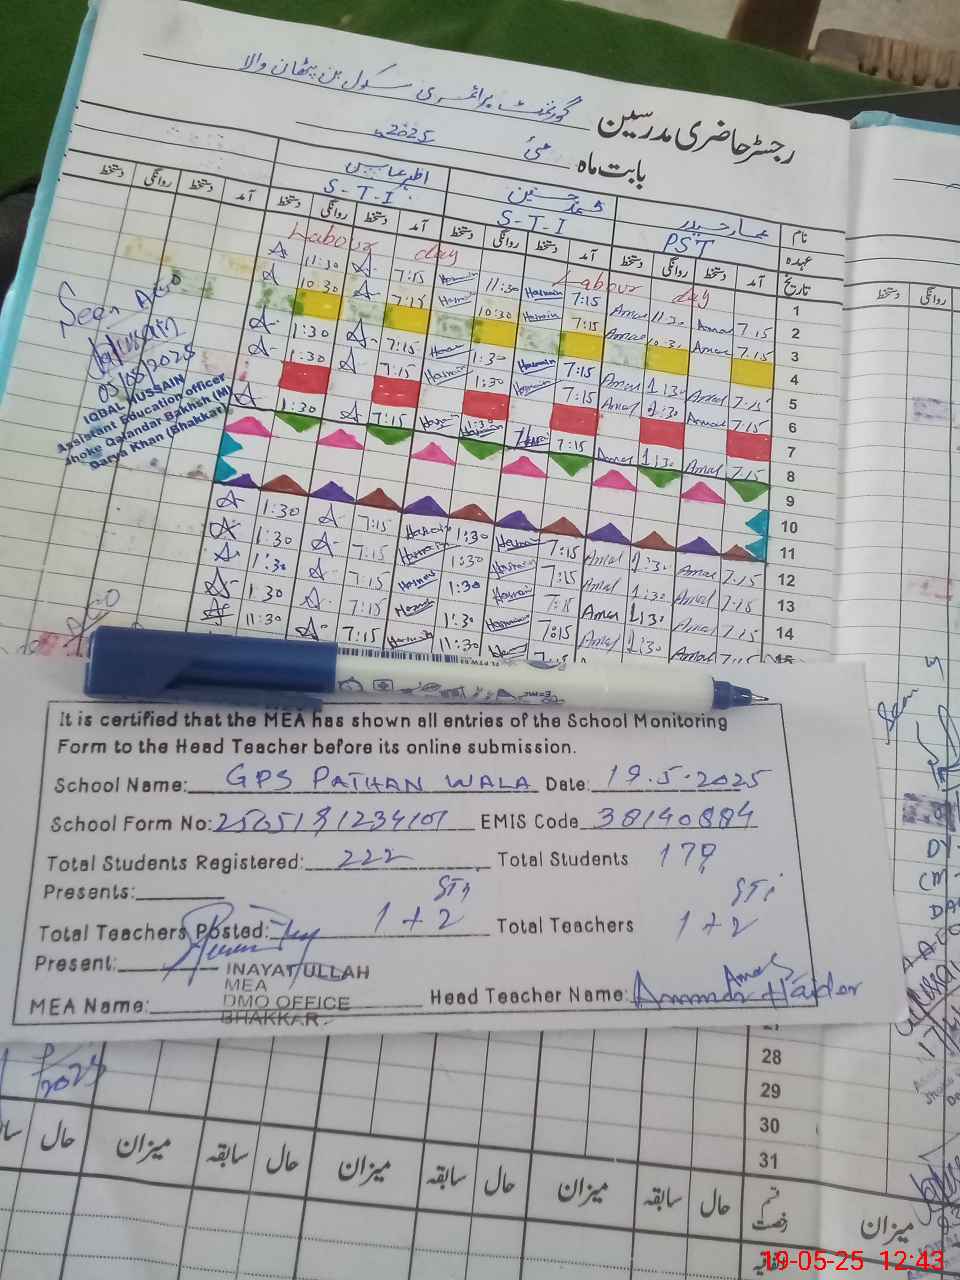 گورنمنٹ پرائمری سکول بن پٹھان والا
رجسٹر حاضری مدرسین
بابت ماہ مئی 2025ء
نام عمار حیدر حسنین اظہر عباس
عہدہ PST S-T-I S-T-I
تاریخ آمد دستخط روانگی دستخط آمد دستخط روانگی دستخط آمد دستخط روانگی دستخط آمد دستخط روانگی دستخط
1 Labour day Labour day
2 7:15 Amar 11:30 7:15 Hasnain 11:30 Hasnain 7:15 A 11:30 A
3 7:15 Amar 10:30 Amar 7:15 Hasnain 10:30 Hasnain 7:15 A 10:30 A
4
5 7:15 Amar 1:30 Amar 7:15 Hasnain 1:30 Hasnain 7:15 A 1:30 A
6 7:15 Amar 1:30 Amar 7:15 Hasnain 1:30 Hasnain 7:15 A 1:30 A
7
8 7:15 Amar 1:30 Amar 7:15 1:30 7:15 A 1:30 A
9
10
11
12 7:15 Amar 1:30 Amar 7:15 Hasnain 1:30 Hasnain 7:15 A 1:30 A
13 7:15 Amar 1:30 Amar 7:15 Hasnain 1:30 Hasnain 7:15 A 1:30 A
14 7:15 Amar 1:30 Amar 7:15 Hasnain 1:30 Hasnain 7:15 A 1:30 A
15
Seen AEO
Hussain
05/05/2025
IQBAL HUSSAIN
Assistant Education officer
Jhoke Qalandar Bakhsh (M)
Darya Khan (Bhakkar)
It is certified that the MEA has shown all entries of the School Monitoring
Form to the Head Teacher before its online submission.
School Name: GPS PATHAN WALA Date: 19.5.2025
School Form No: EMIS Code 38140884
Total Students Registered: 222 Total Students 179
Presents:
STI STI
Total Teachers Posted: 1+2 Total Teachers 1+2
Present:
INAYAT ULLAH
MEA
DMO OFFICE
BHAKKAR
MEA Name: Head Teacher Name: Ammar Haider
Amar
27
28
29
30
31
قسم رخصت حال سابقہ میزان حال سابقہ میزان حال سابقہ میزان حال
میزان
اتفاقیہ
روانگی دستخط
Seen
2025
19-05-25 12:43